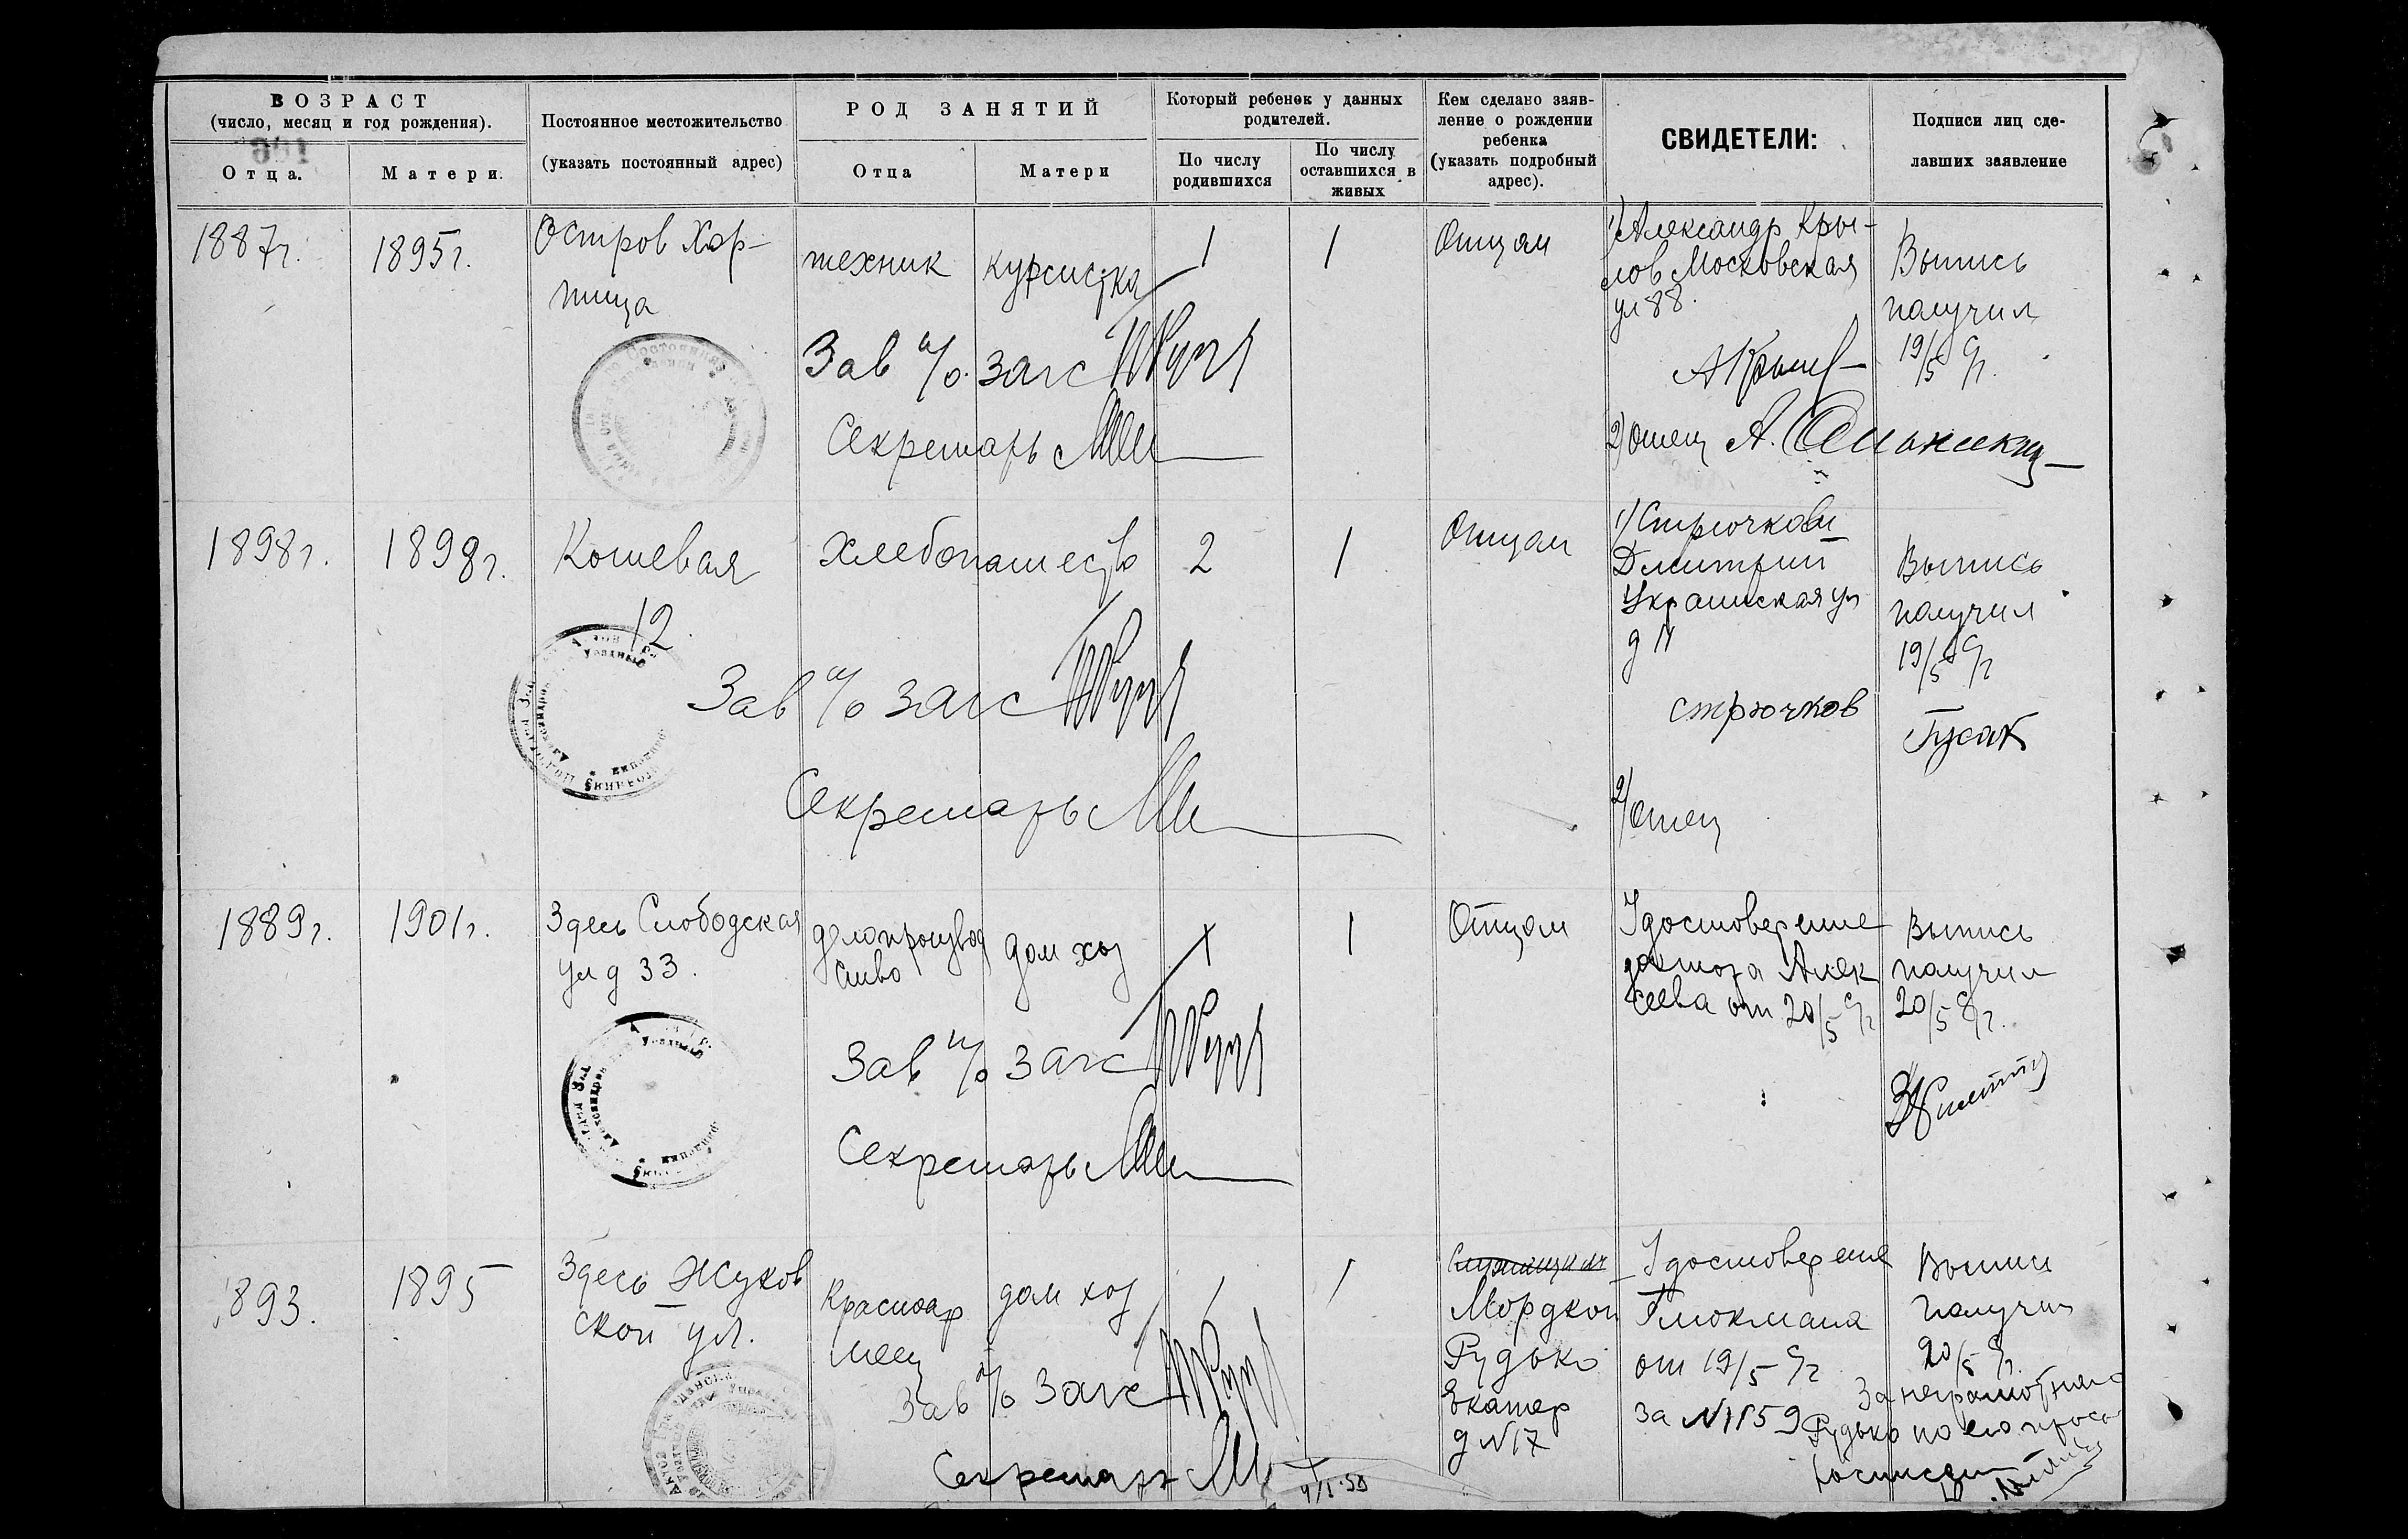 ВОЗРАСТ
(число, месяц и год рождения).
Отца.
Матери.
Постоянное местожительство
(указать постоянный адрес)
РОД ЗАНЯТИЙ
Отца
Матери
Который ребенок у данных
родителей.
По числу
родившихся
По числу
оставшихся в
живых
Кем сделано заяв-
ление о рождении
ребенка
(указать подробный
адрес).
СВИДЕТЕЛИ:
Подписи лиц сде-
лавших заявление
1887г.
1895г.
Остров Хор-
тица
техник
курсистка
1
1
Отцом
1) Александр Кры-
лов Московская
ул 88.
Выпись
получил
19/5 с/г.
Зав п/о загс
Секретарь
2) отец А.
1898г.
1898г.
Кошевая
12
Хлебопашество
2
1
Отцом
1) Стрючков
Дмитрий
Украинская ул
д 11
стрючков
2) отец
Выпись
получил
19/5 с/г
Гусак
Зав п/о загс
Секретарь
1889г.
1901г.
Здесь Слободская
ул д 33.
делопроизвод
ство
дом хоз
1
1
Отцом
Удостоверение
доктора Алек
сеева от 20/5 с/г
Выпись
получил
20/5 с/г.
Зав п/о загс
Секретарь
1893.
1895
Здесь Жуков
ской ул.
Красноар
меец
дом хоз
1
1
Мордкой
Рудько
Екатер
д N17
Удостоверение
Глюкмана
от 19/5 с/г
за N1159
Выпись
получил
20/5 с/г.
За неграмотного
Рудько по его прось
Зав п/о загс
Секретарь